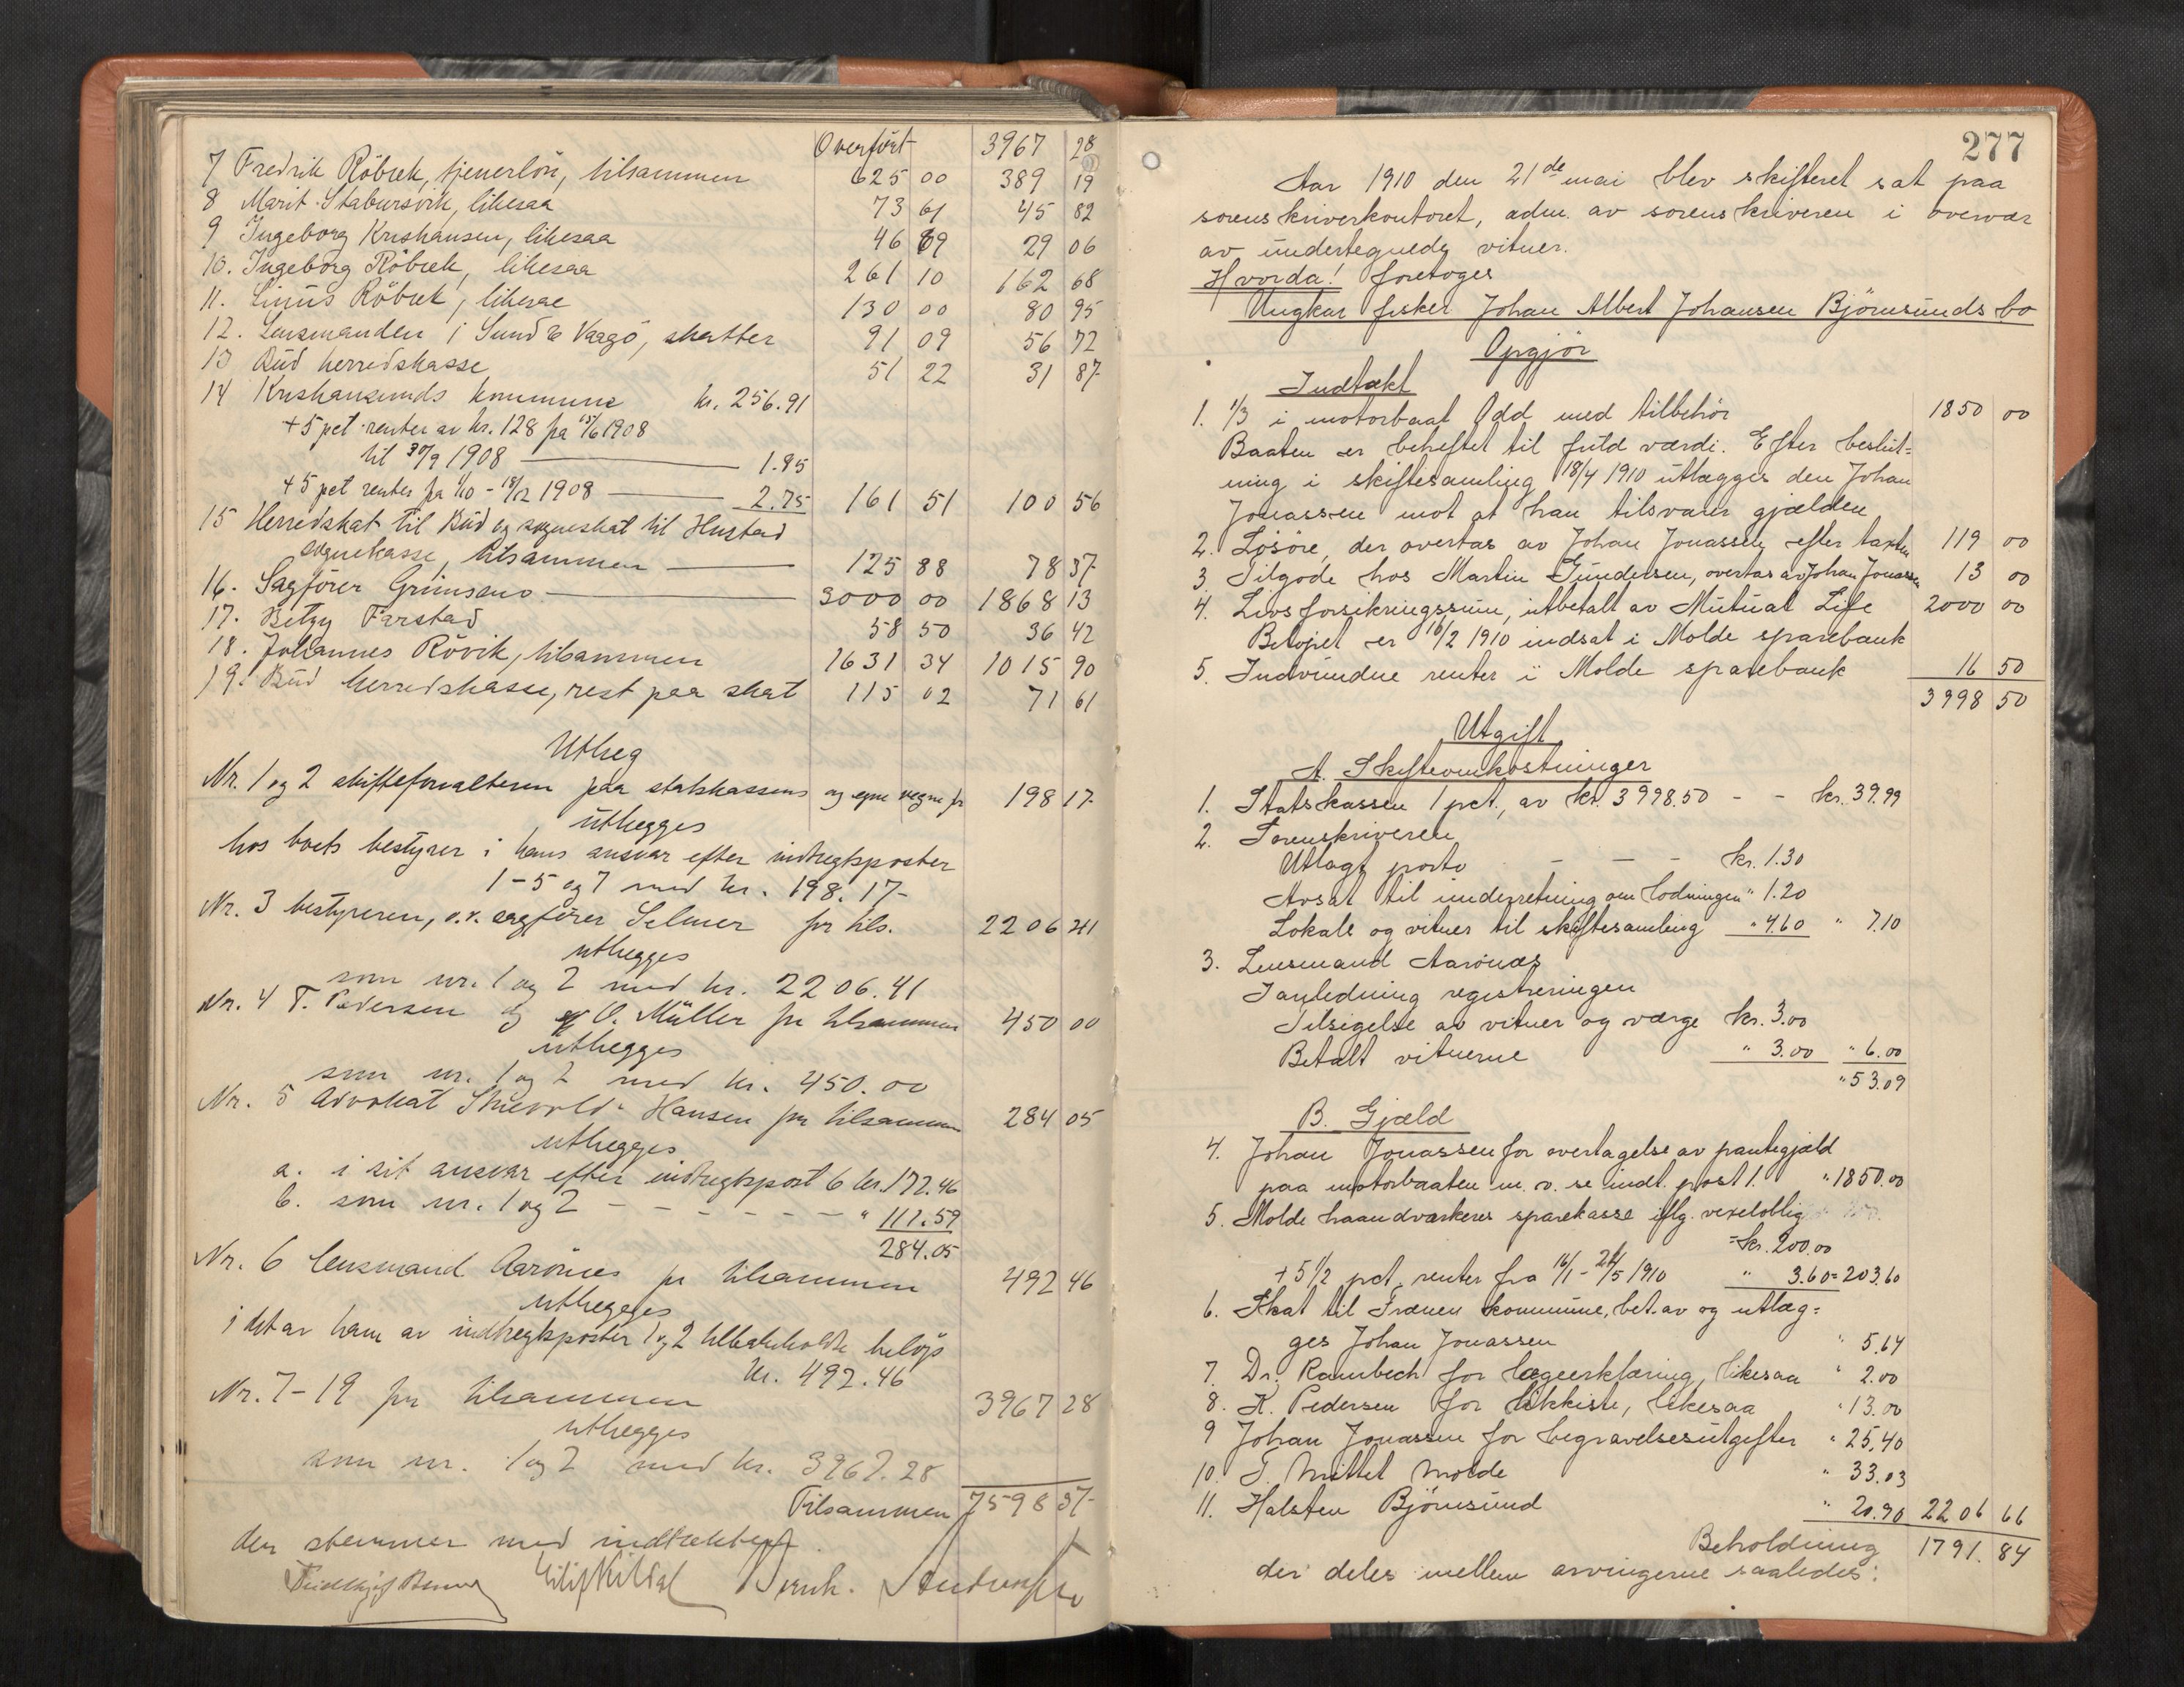 Overført 3967 28
7 Fredrik Röbæk, tjenerlön, tilsammen 625 00 389 19
8 Marit Stabursvik, likesaa 73 61 45 82
9 Ingeborg Kristiansen, likesaa 46 69 29 06
10. Ingeborg Röbæk, likesaa 261 10 162 68
11. Linus Röbæk, likesaa 130 00 80 95
12. Lensmanden i Sund & Vaagö, skatter 91 09 56 72
13 Bud herredskasse 51 22 31 87
14 Kristiansunds kommune kr. 256.91
+ 5 pct renter av kr. 128 fra 15/6 1908
til 30/9 1908 1.85
+ 5 pct renter fra 1/10 - 18/12 1908 2.75 161 51 100 56
15 Herredskat til Bud og sogneskat til Hustad
sognekasse, tilsammen 125 88 78 37
16. Sagförer Grimsmo 3000 00 1868 13
17. Betzy Farstad 58 50 36 42
18. Johannes Rövik, tilsammen 1631 34 1015 90
19. Bud herredskasse, rest paa skat 115 02 71 61
Utlæg
Nr. 1 og 2 skifteforvalteren paa statskassens og egne vegne fr 198 17
utlægges
hos boets bestyrer i hans ansvar efter indtægtsposter
1-5 og 7 med kr. 198.17
Nr. 3 bestyreren, o.r. sagförer Selmer fr tils. 2206 41
utlægges
som nr. 1 og 2 med kr. 2206.41
Nr. 4 T. Pedersen og O. Müller fr tilsammen 450 00
utlægges
som nr. 1 og 2 med kr. 450.00
Nr. 5 Advokat Hansen fr tilsammen 284 05
utlægges
a. i sit ansvar efter indtægtspost 6 kr. 172.46
b. som nr. 1 og 2 - - - - - - " 111.59
284.05
Nr. 6 lensmand Aarönes fr tilsammen 492 46
utlægges
i det av ham av indtægtsposter 1 og 2 tilbakeholdte belöp
kr. 492.46
Nr. 7-19 fr tilsammen 3967 28
utlægges
som nr. 1 og 2 med kr. 3967.28
Tilsammen 7598 37
der stemmer med indtækten.
277
Aar 1910 den 21de mai blev skifteret sat paa
sorenskriverkontoret, adm. av sorenskriveren i overvær
av undertegnede vitner.
Hvorda! foretoges
Ungkar fisker Johan Albert Johansen Björnsunds bo
Opgjör
Indtækt
1. 1/3 i motorbaat Odd med tilbehör 1850 00
Baaten er beheftet til fuld værdi. Efter beslut-
ning i skiftesamling 18/4 1910 utlægges den Johan
Jonassen mot at han tilsvarer gjælden
2. Lösöre, der overtas av Johan Jonassen efter taxten 119 00
3 Tilgode hos Martin Gundersen, overtas av Johan Jonassen 13 00
4. Livsforsikringssum, utbetalt av Mutual Life 2000 00
Belöpet er 16/2 1910 indsat i Molde sparebank
5. Indvundne renter i Molde sparebank 16 50
3998 50
Utgift
A. Skifteomkostninger
1. Statskassen 1 pct. av kr. 3998.50 - - kr. 39.99
2. Sorenskriveren
Utlagt porto - - - kr. 1.30
Avsat til underretning om lodningen " 1.20
Lokale og vitner til skiftesamling " 4.60 " 7.10
3. Lensmand Aarönæs
I anledning registreringen
Tilsigelse av vitner og værge kr. 3.00
Betalt vitnerne " 3.00 " 6.00
" 53.09
B. Gjæld
4. Johan Jonassen for overtagelse av pantegjæld
paa motorbaaten m. v. se indt. post 1. " 1850.00
5. Molde haandverkeres sparekasse iflg. vexeloblig
= kr. 200.00
+ 5 1/2 pct. renter fra 16/1 - 21/5 1910 " 3.60 = 203.60
6. Skat til Frænen kommune, bet. av og utlæg=
ges Johan Jonassen " 5.64
7. Dr. Rambech for lægeerklæring, likesaa " 2.00
8. K. Pedersen for likkiste, likesaa " 13.00
9 Johan Jonassen for begravelsesutgifter " 25.40
10. T. Mittet Molde " 33.03
11. Halsten Björnsund " 20.90 2206 66
Beholdning 1791.84
der deles mellem arvingerne saaledes: